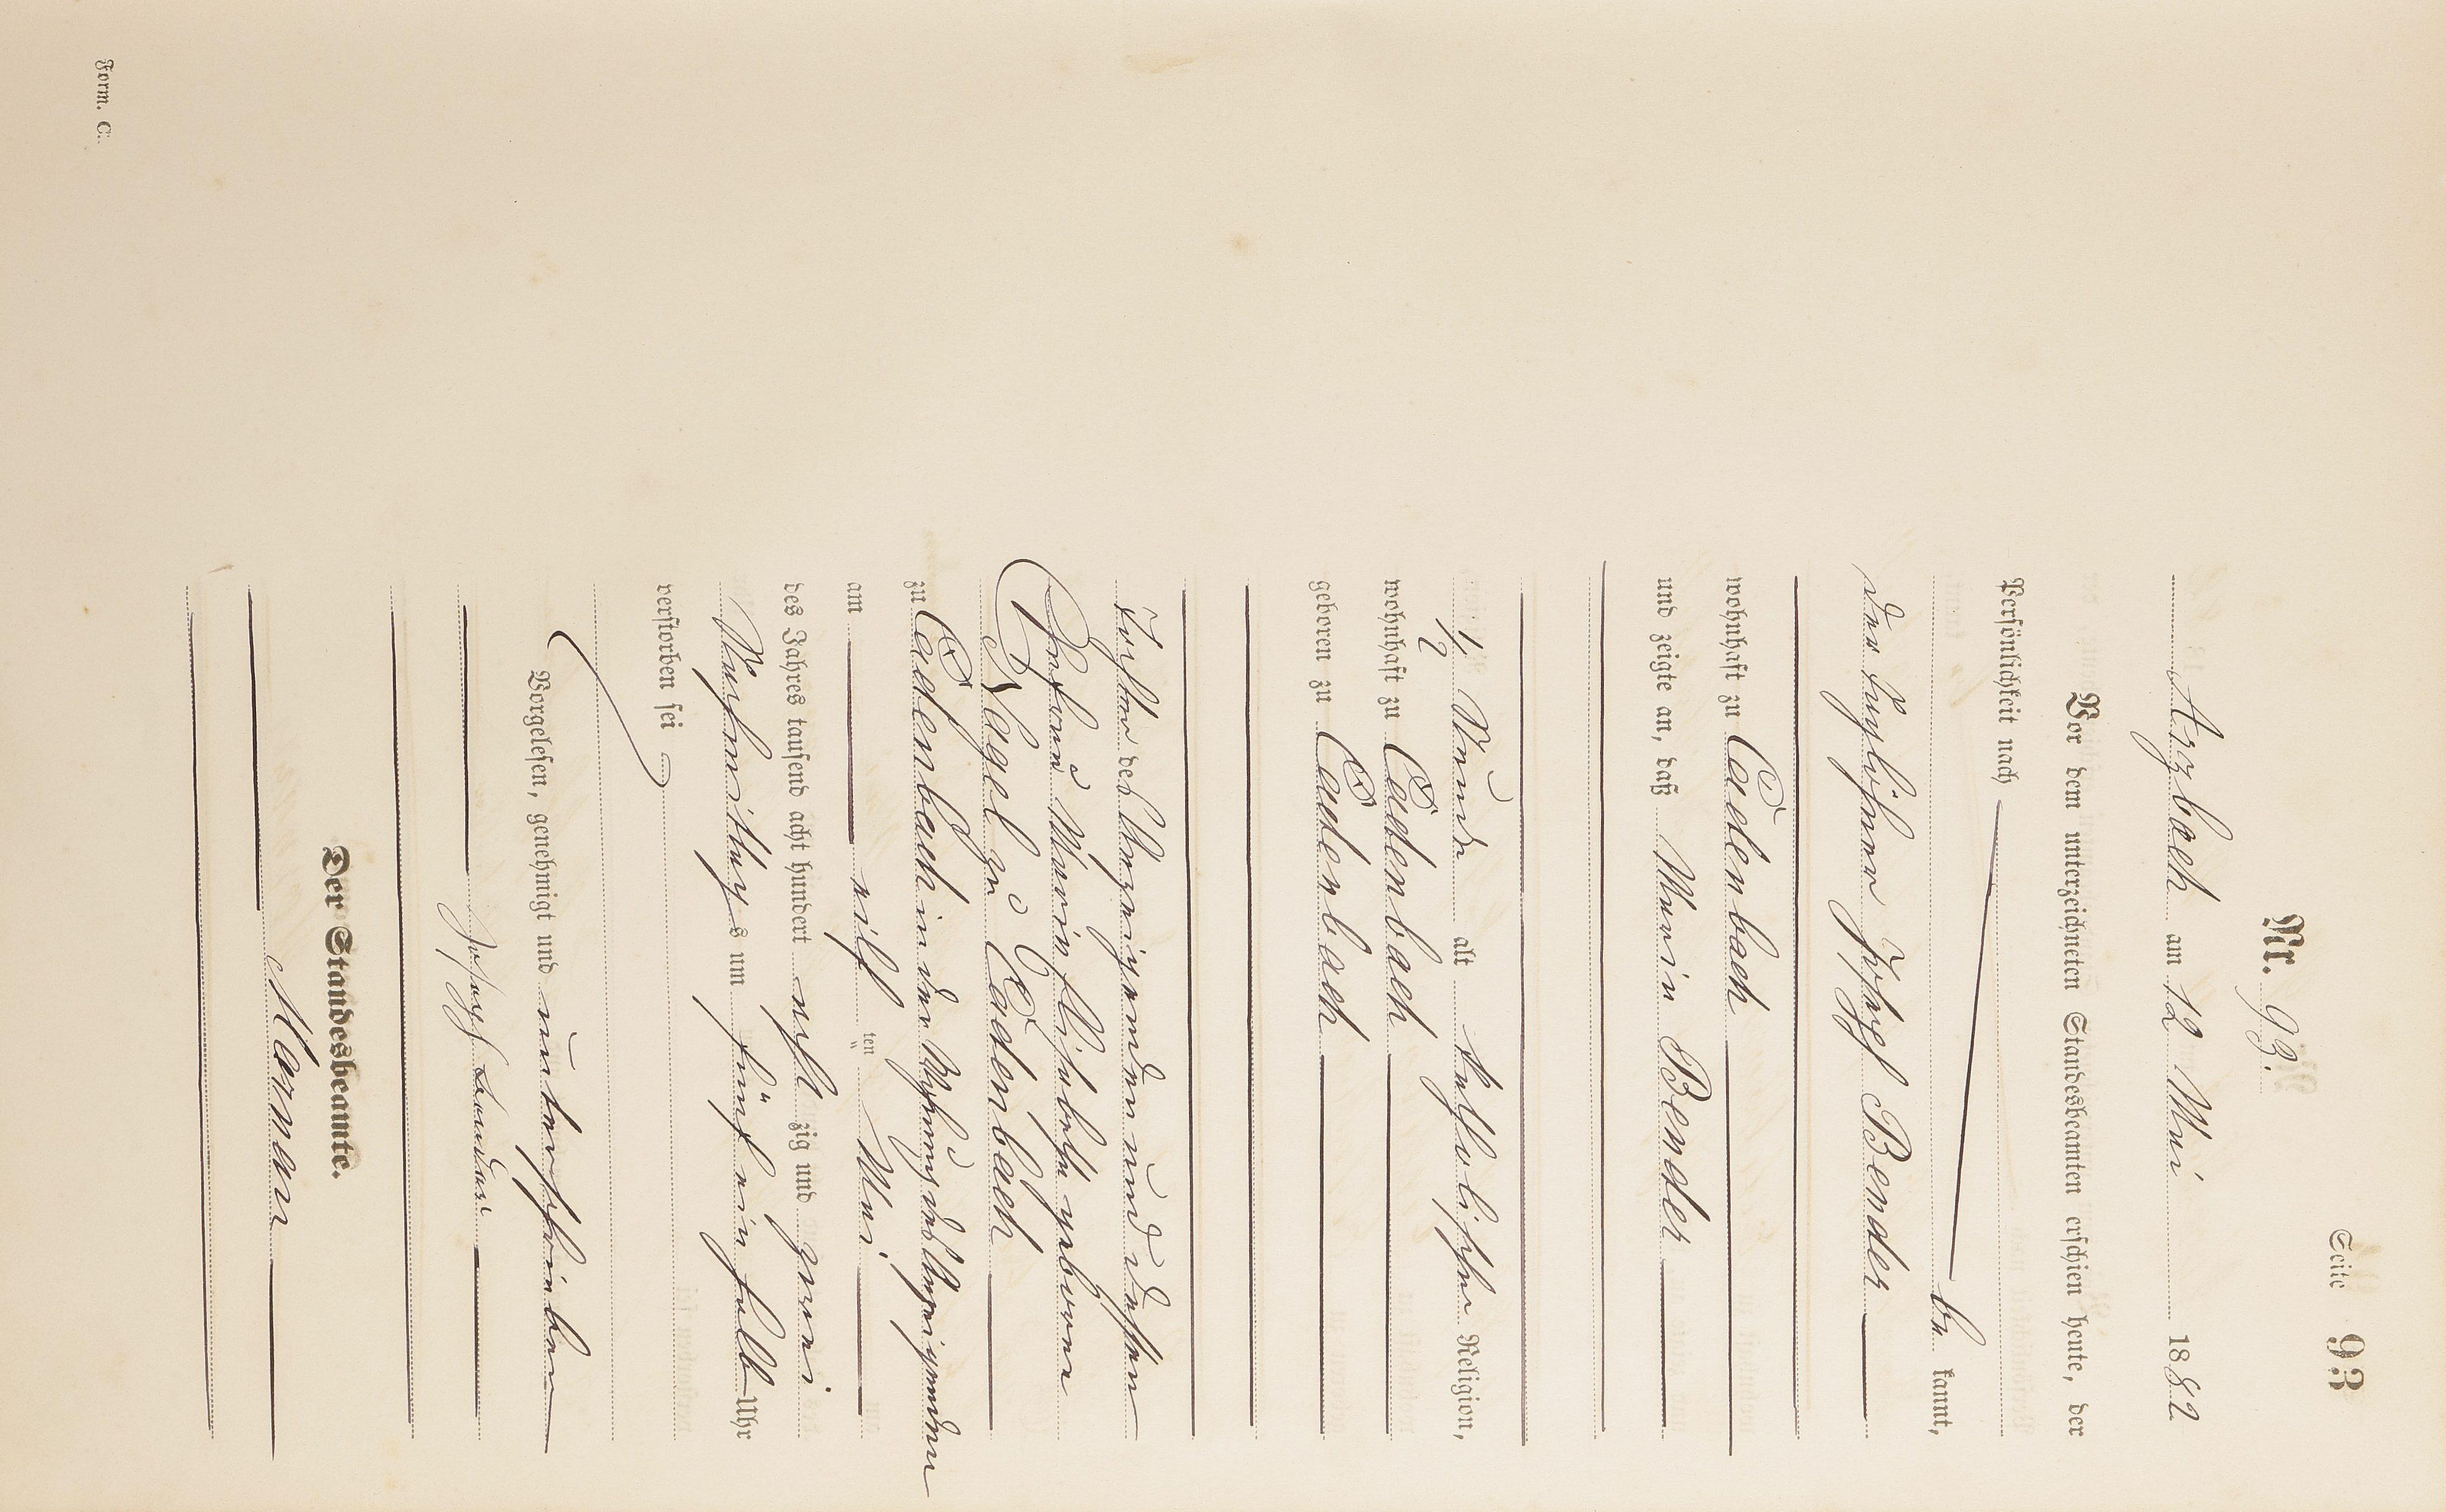 Seite 93
Nr. 93.
Arzbach am 12 Mai 1882
Vor dem unterzeichneten Standesbeamten erschien heute, der
Persönlichkeit nach
be kannt,
der Taglöhner Joseph Bender
wohnhaft zu Cadenbach
und zeigte an, daß Maria Bender
1/2 Stunde alt katholischer Religion,
wohnhaft zu Cadenbach
geboren zu Cadenbach
Tochter des Anzeigenden und dessen
Ehefrau Maria Elisabetha geborene
Nagel zu Cadenbach
zu Cadenbach in der Wohnung des Anzeigenden
am eilf ten Mai
des Jahres tausend acht hundert acht zig und zwei
Nachmittags um fünf ein halb Uhr
verstorben sei
Vorgelesen, genehmigt und unterschrieben
Joseph Bender
Der Standesbeamte.
Form. C.